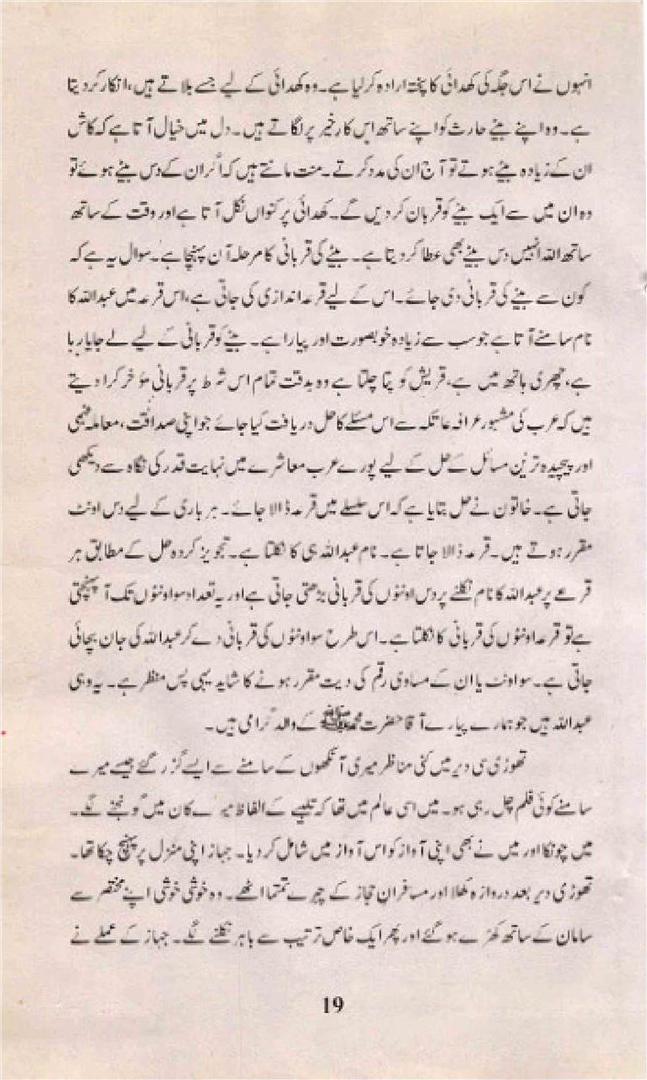 انہوں نے اس جگہ کی کھدائی کا پختہ ارادہ کر لیا ہے۔ وہ کھدائی کے لیے جسے بلاتے ہیں، انکار کر دیتا
ہے۔ وہ اپنے بیٹے حارث کو اپنے ساتھ اس کارِ خیر پر لگاتے ہیں۔ دل میں خیال آتا ہے کہ کاش
ان کے زیادہ بیٹے ہوتے تو آج ان کی مدد کرتے۔ منت مانتے ہیں کہ اگر ان کے دس بیٹے ہوئے تو
وہ ان میں سے ایک بیٹے کو قربان کر دیں گے۔ کھدائی پر کنواں نکل آتا ہے اور وقت کے ساتھ
ساتھ اللہ انہیں دس بیٹے بھی عطا کر دیتا ہے۔ بیٹے کی قربانی کا مرحلہ آن پہنچا ہے۔ سوال یہ ہے کہ
کون سے بیٹے کی قربانی دی جائے۔ اس کے لیے قرعہ اندازی کی جاتی ہے، اس قرعہ میں عبداللہ کا
نام سامنے آتا ہے جو سب سے زیادہ خوبصورت اور پیارا ہے۔ بیٹے کو قربانی کے لیے لے جایا رہا
ہے، چھری ہاتھ میں ہے، قریش کو پتا چلتا ہے وہ بدقت تمام اس شرط پر قربانی مؤخر کرا دیتے
ہیں کہ عرب کی مشہور عرافہ عاتکہ سے اس مسئلے کا حل دریافت کیا جائے جو اپنی صداقت، معاملہ فہمی
اور پیچیدہ ترین مسائل کے حل کے لیے پورے عرب معاشرے میں نہایت قدر کی نگاہ سے دیکھی
جاتی ہے۔ خاتون نے حل بتایا ہے کہ اس سلسلے میں قرعہ ڈالا جائے۔ ہر باری کے لیے دس اونٹ
مقرر ہوتے ہیں۔ قرعہ ڈالا جاتا ہے۔ نام عبداللہ ہی کا نکلتا ہے۔ تجویز کردہ حل کے مطابق ہر
قرعے پر عبداللہ کا نام نکلنے پر دس اونٹوں کی قربانی بڑھتی جاتی ہے اور یہ تعداد سو اونٹوں تک آ پہنچتی
ہے تو قرعہ اونٹوں کی قربانی کا نکلتا ہے۔ اس طرح سو اونٹوں کی قربانی دے کر عبداللہ کی جان بچائی
جاتی ہے۔ سو اونٹ یا ان کے مساوی رقم کی دیت مقرر ہونے کا شاید یہی پس منظر ہے۔ یہ وہی
عبداللہ ہیں جو ہمارے پیارے آقا حضرت محمد ﷺ کے والد گرامی ہیں۔
تھوڑی سی دیر میں کئی مناظر میری آنکھوں کے سامنے سے ایسے گزر گئے جیسے میرے
سامنے کوئی فلم چل رہی ہو۔ میں اسی عالم میں تھا کہ تلبیے کے الفاظ میرے کان میں گونجنے لگے۔
میں چونکا اور میں نے بھی اپنی آواز کو اس آواز میں شامل کر دیا۔ جہاز اپنی منزل پر پہنچ چکا تھا۔
تھوڑی دیر بعد دروازہ کھلا اور مسافرانِ حجاز کے چہرے تمتما اٹھے۔ وہ خوشی خوشی اپنے مختصر سے
سامان کے ساتھ کھڑے ہو گئے اور پھر ایک خاص ترتیب سے باہر نکلنے لگے۔ جہاز کے عملے نے
19